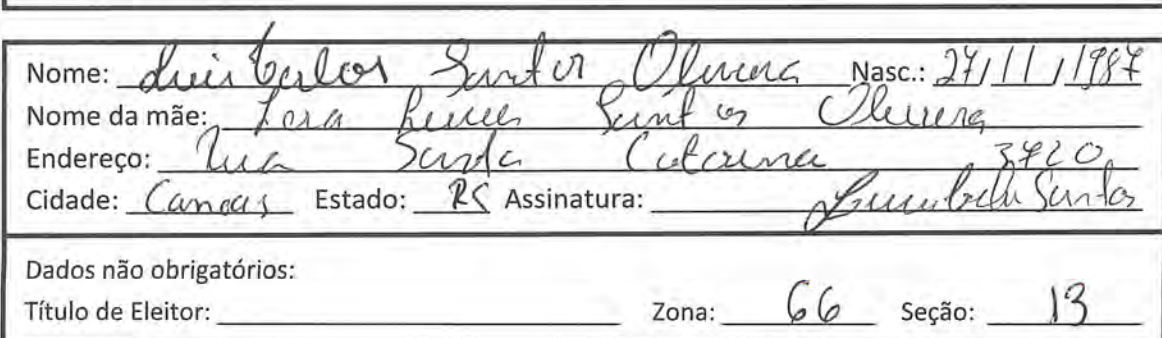 Nome: Luis Carlos Santos Oliveira Nasc.: 27/11/1987
Nome da mãe: Santos Oliveira
Endereço: Rua Santa Catarina 3720
Cidade: Canoas Estado: RS Assinatura: Santos
Dados não obrigatórios:
Título de Eleitor: Zona: 66 Seção: 13